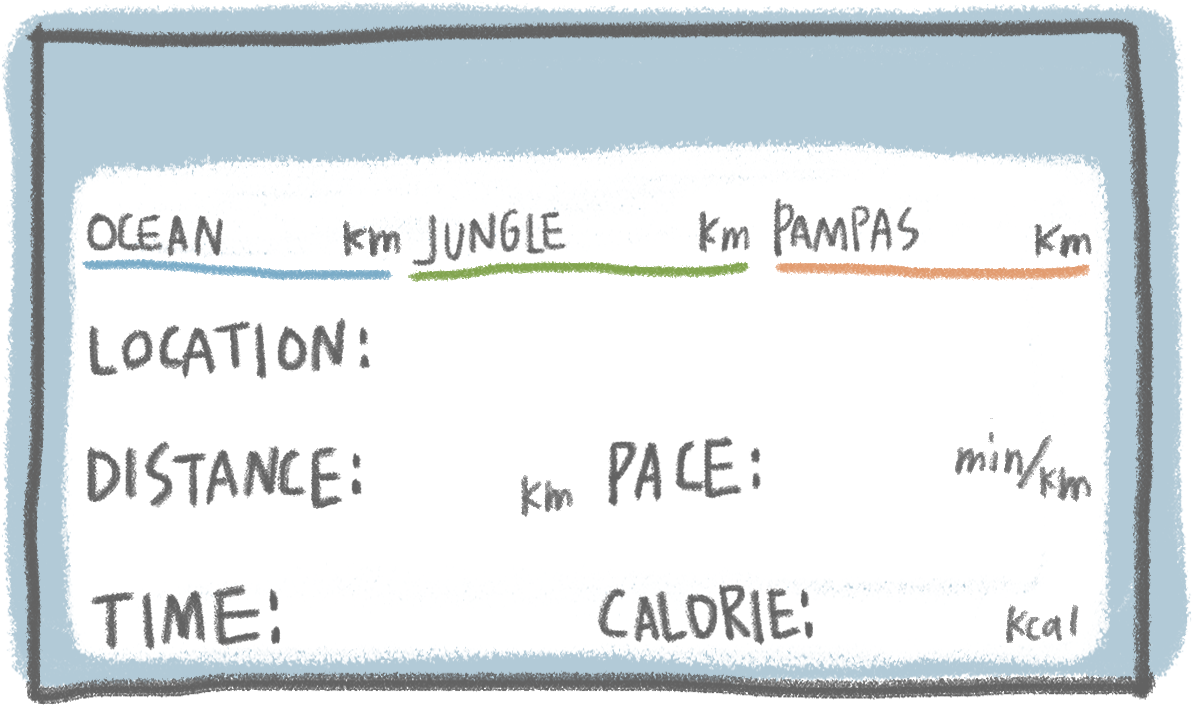 OCEAN km JUNGLE km PAMPAS km
LOCATION:
DISTANCE: km PACE: min/km
TIME: CALORIE: kcal